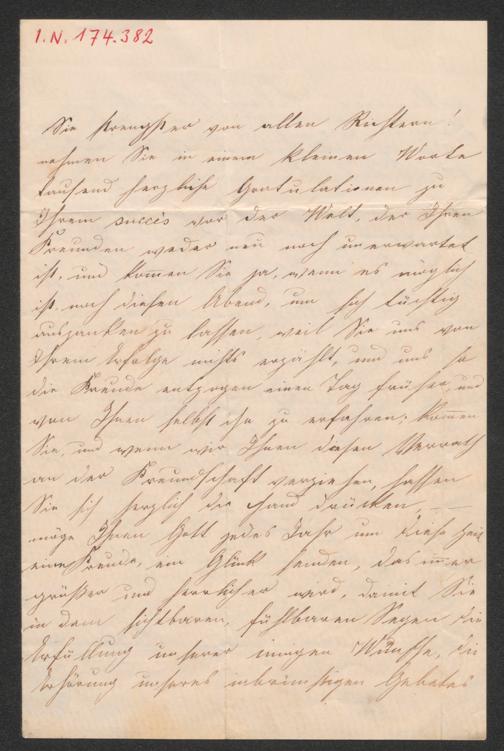 I.N. 174.382
Sie strengster von allen Richtern!
nehmen Sie in einem kleinen Worte
tausend herzliche Gratulationen zu
Ihrem succès vor der Welt, der Ihren
Freunden weder neu noch unerwartet
ist, und kommen Sie ja, wenn es möglich
ist, noch diesen Abend, um sich tüchtig
auszanken zu lassen, weil Sie uns von
Ihrem Erfolge nichts erzählt, und uns so
die Freude entzogen einen Tag früher, und
von Ihnen selbst ihn zu erfahren; kommen
Sie, und wenn wir Ihnen diesen Verrath
an der Freundschaft verziehen, lassen
Sie sich herzlich die Hand drücken
möge Ihnen Gott jedes Jahr um diese Zeit
eine Freude, ein Glück senden, das immer
größer und herrlicher wird, damit Sie
in dem sichtbaren, fühlbaren Segen die
Erfüllung unserer innigen Wünsche, die
Erhörung unseres inbrünstigen Gebetes